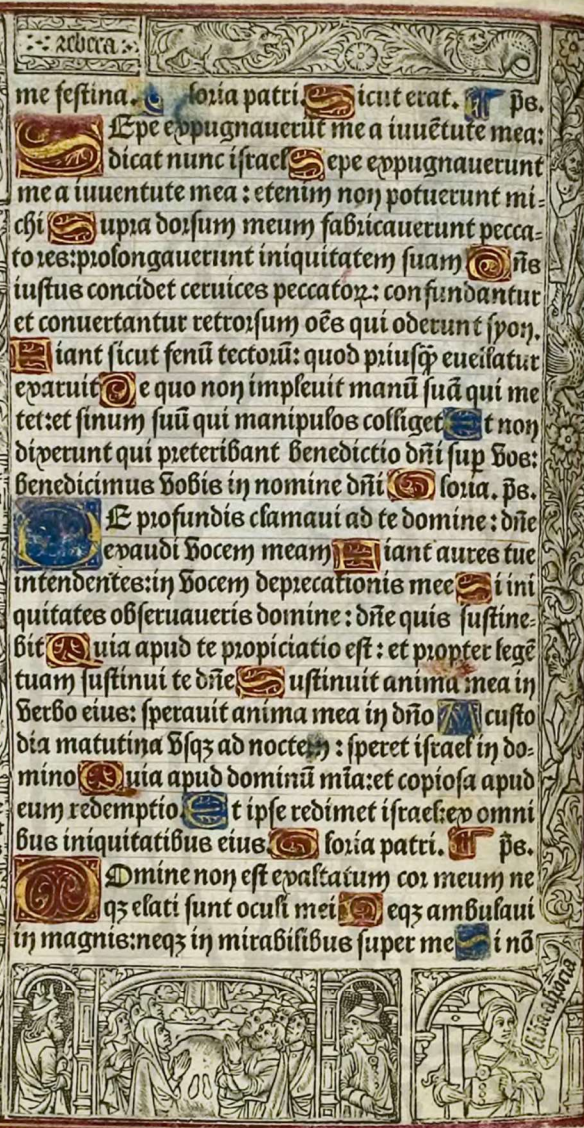 zebera
me festina. Gloria patri. Sicut erat. p̄s.
SEpe expugnauerūt me a iuuētute mea:
dicat nunc israel Sepe expugnauerunt
me a iuuentute mea : etenim non potuerunt mi-
chi Supra dorsum meum fabricauerunt pecca-
tores: prolongauerunt iniquitatem suam Dn̄s
iustus concidet ceruices peccatoꝝ: confundantur
et conuertantur retrorsum oēs qui oderunt syon.
Fiant sicut fenū tectorū: quod priusq̄ꝫ euellatur
exaruit De quo non impleuit manū suā qui me
tet: et sinum suū qui manipulos colliget Et non
dixerunt qui preteribant benedictio dn̄i suꝑ vos:
benedicimus vobis in nomine dn̄i Gloria. p̄s.
DE profundis clamaui ad te domine : dn̄e
exaudi vocem meam Fiant aures tue
intendentes: in vocem deprecationis mee Si ini
quitates obseruaueris domine : dn̄e quis sustine-
bit Quia apud te propiciatio est : et propter legē
tuam sustinui te dn̄e Sustinuit anima mea in
verbo eius: sperauit anima mea in dn̄o A custo
dia matutina vsqꝫ ad noctem : speret israel in do-
mino Quia apud dominū mīa: et copiosa apud
eum redemptio. Et ipse redimet israel: ex omni
bus iniquitatibus eius. Gloria patri. p̄s.
DOmine non est exaltatum cor meum ne
qꝫ elati sunt oculi mei Neqꝫ ambulaui
in magnis: neqꝫ in mirabilibus super me Si nō